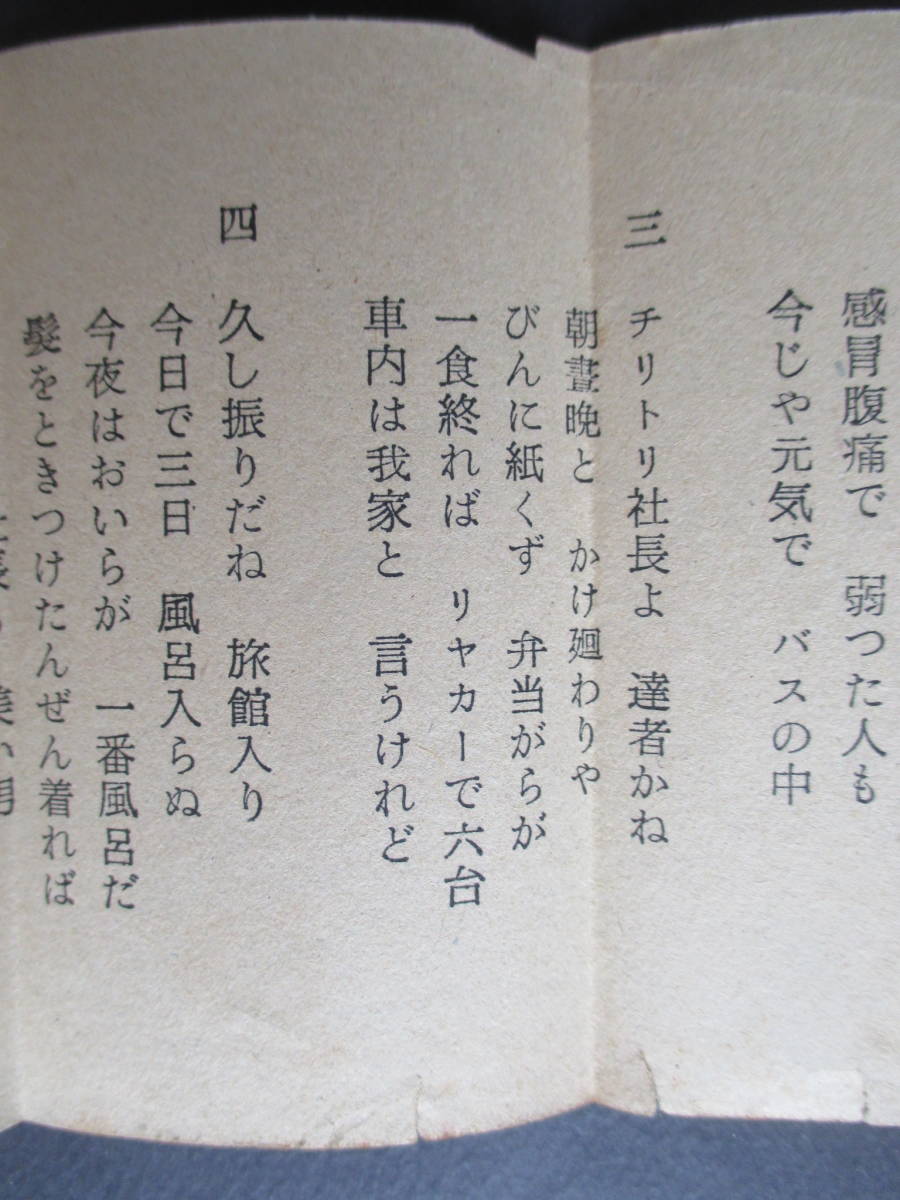 感冒腹痛で 弱つた人も
今じや元気で バスの中
三 チリトリ社長よ 達者かね
朝晝晩と かけ廻わりや
びんに紙くず 弁当がらが
一食終れば リヤカーで六台
車内は我家と 言うけれど
四 久し振りだね 旅館入り
今日で三日 風呂入らぬ
今夜はおいらが 一番風呂だ
髪をときつけたんぜん着れば